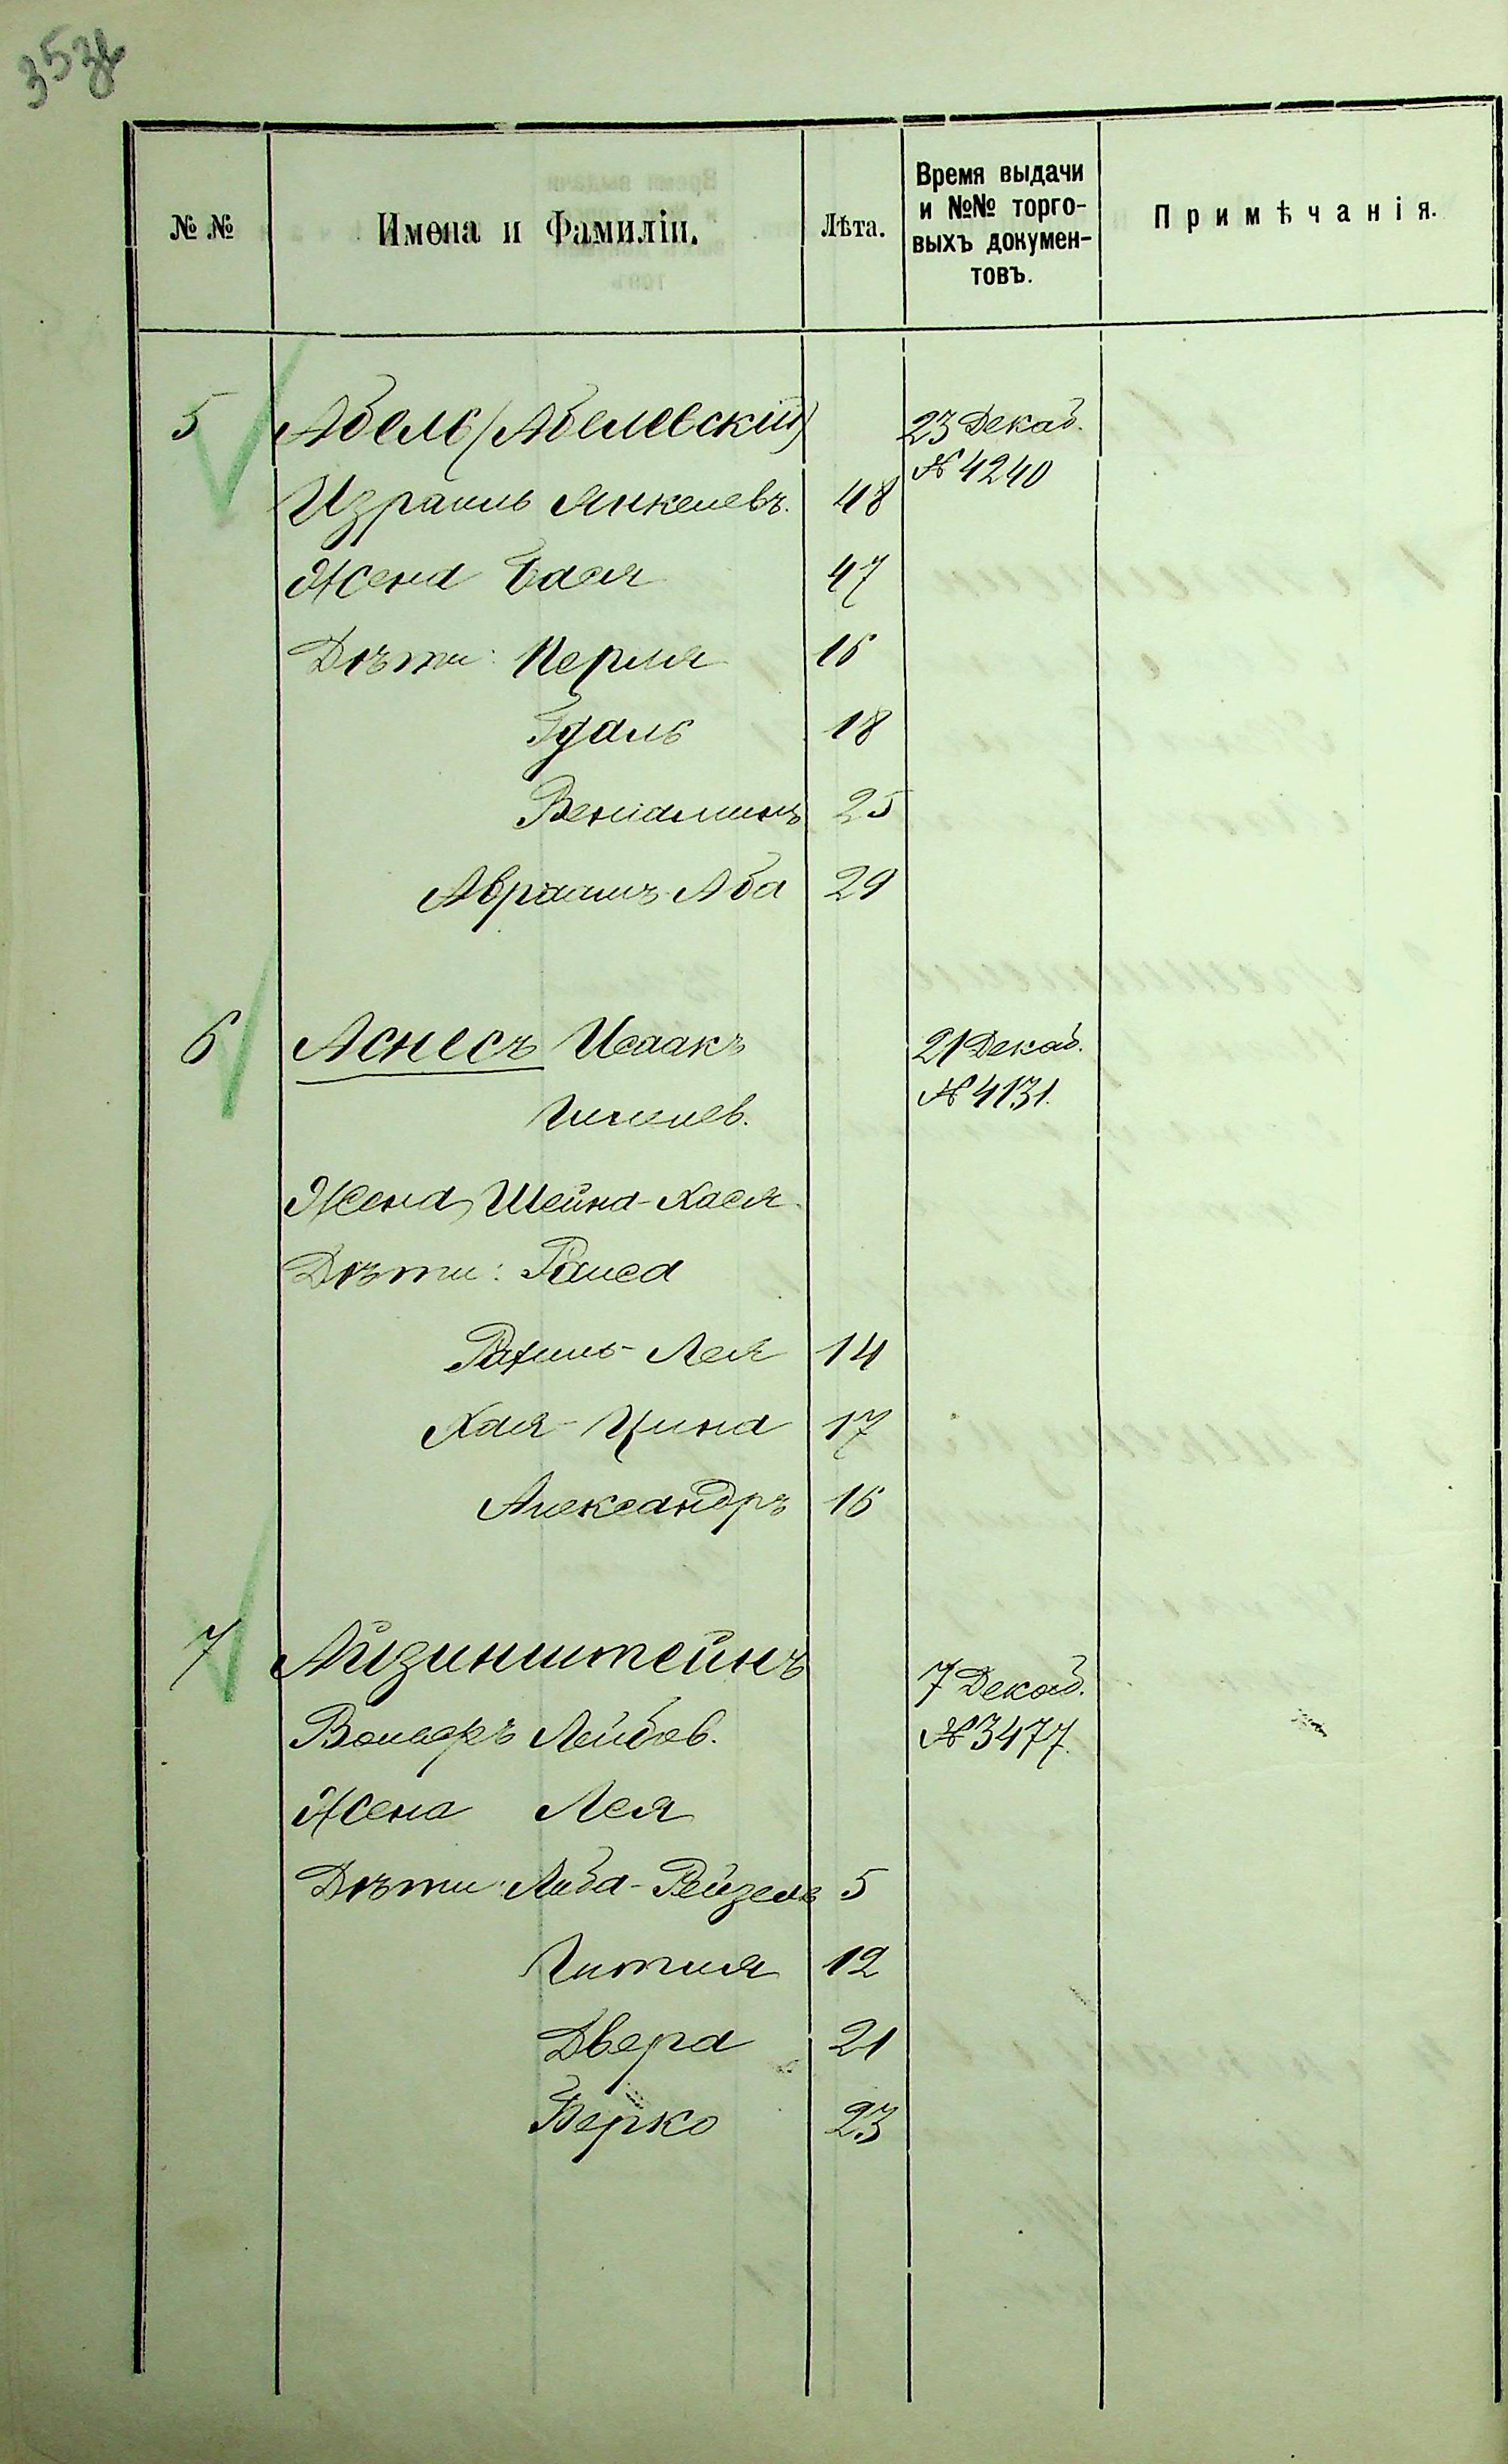 № №
Имена и Фамиліи.
Лѣта.
Время выдачи
и №№ торго-
выхъ докумен-
товъ.
Примѣчанія.
5 Абель (Абелевскій) 23 Декаб.
№ 4240
Израиль Янкелевъ. 48
Жена Бася 47
Дѣти: Перля 16
Гдаль 18
Веніаминъ 25
Авраамъ-Аба 29
6 Аснесъ Исаакъ 21 Декаб.
Гилелев. № 4131.
Жена Шейна-Хася
Дѣти: Раиса
Рахиль-Лея 14
Хая-Цина 17
Александръ 16
7 Айзинштейнъ 7 Декаб.
Вольфъ Лейбов. № 3477.
Жена Лея
Дѣти: Либа-Рейзель 5
Гитля 12
Двера 21
Берко 23